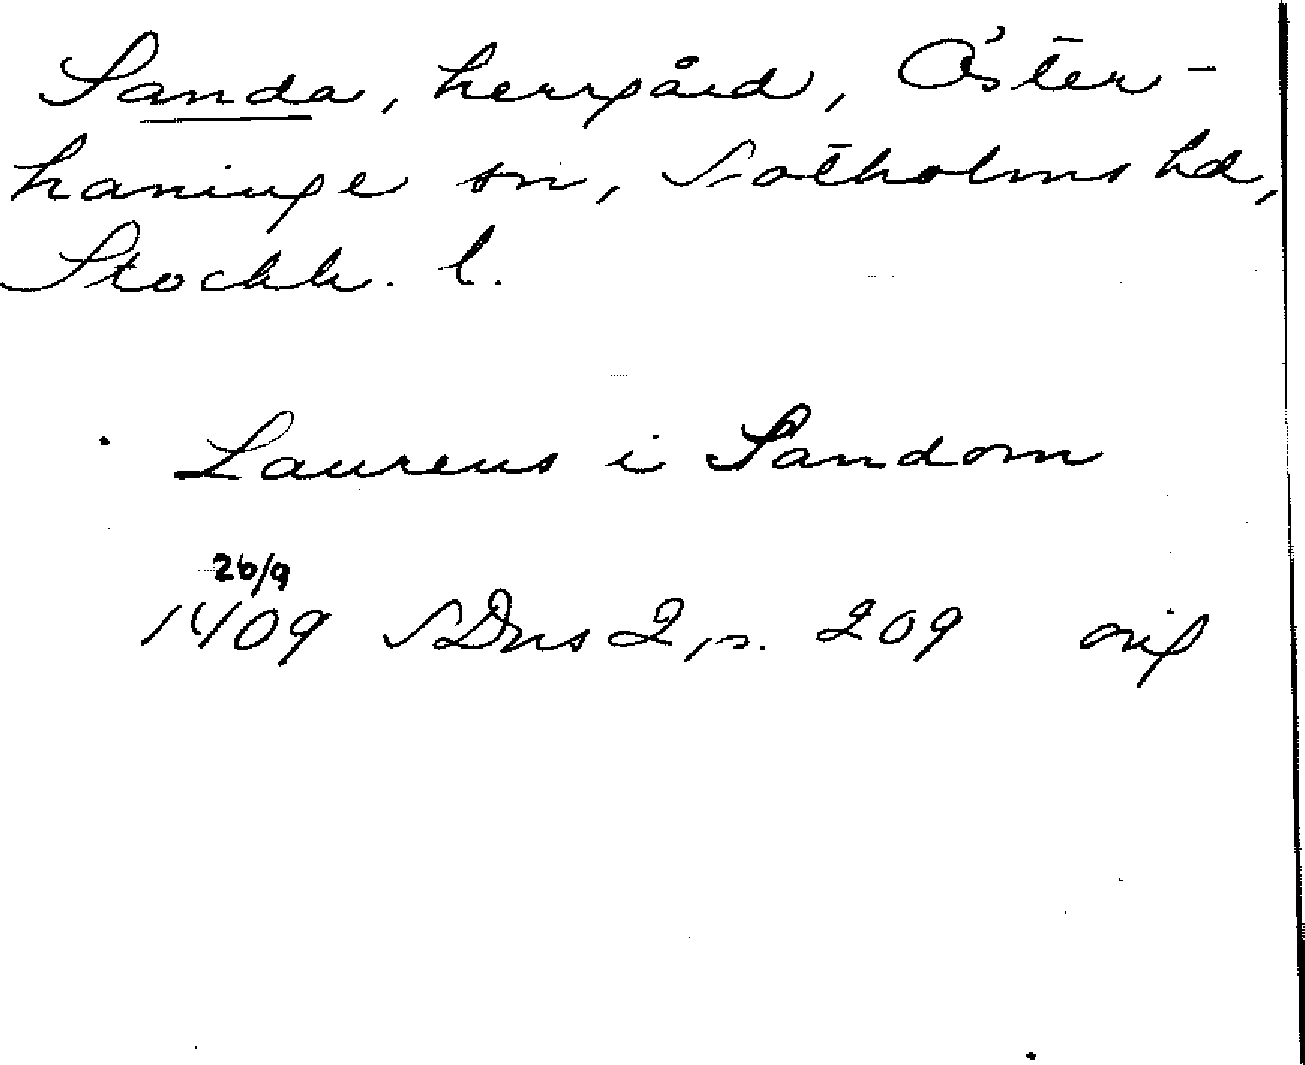 Sanda, herrgård, Öster-
haninge sn, Sotholms hd,
Stockh. l.
Laurens i Sandom
26/9
1409 SDns 2, s. 209 orig